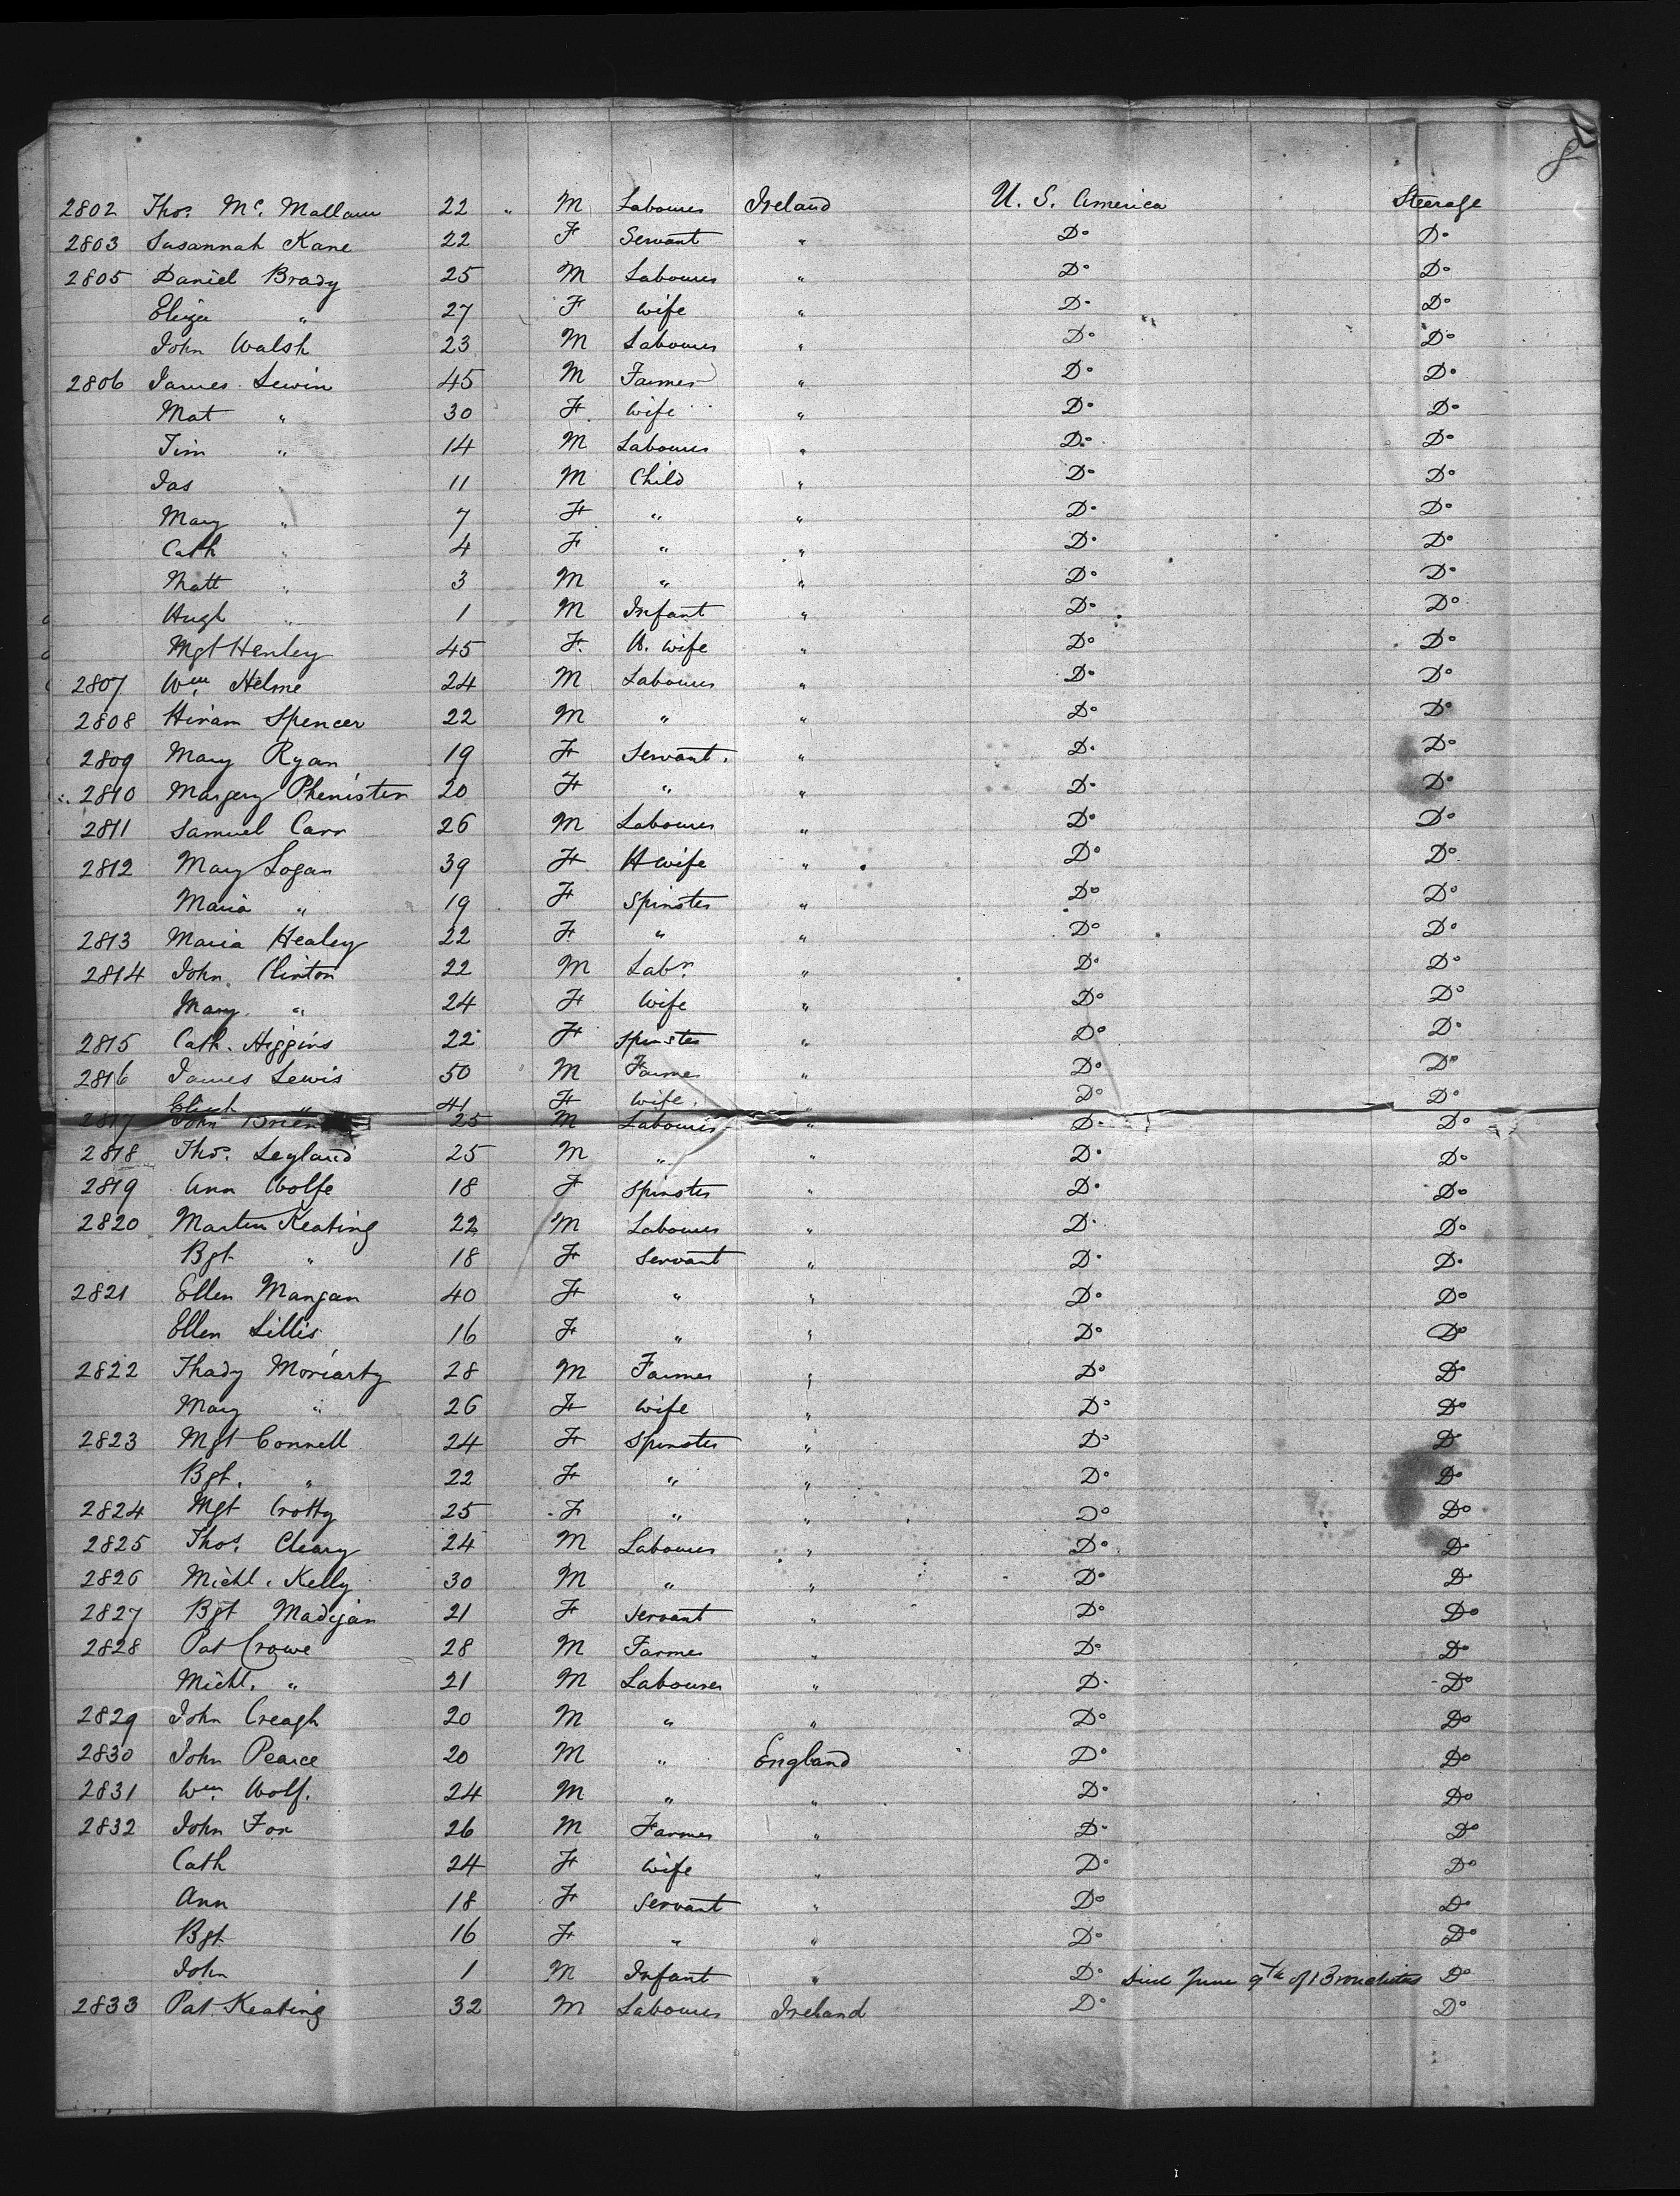 2802 Thos. Mc. Mallam 22 " M Labourer Ireland U. S. America Steerage
2803 Susannah Kane 22 F Servant " Do Do
2805 Daniel Brady 25 M Labourer " Do Do
Eliza " 27 F Wife " Do Do
John Walsh 23 M Labourer " Do Do
2806 James Lewin 45 M Farmer " Do Do
Mat " 30 F Wife " Do Do
Tim " 14 M Labourer " Do Do
Jas " 11 M Child " Do Do
Mary " 7 F " " Do Do
Cath " 4 F " " Do Do
Matt " 3 M " " Do Do
Hugh " 1 M Infant " Do Do
Mgt Henley 45 F. H. Wife " Do Do
2807 Wm Helme 24 M Labourer " Do Do
2808 Hiram Spencer 22 M " " Do Do
2809 Mary Ryan 19 F Servant. " Do Do
2810 Margery Phenister 20 F " " Do Do
2811 Samuel Carr 26 M Labourer " Do Do
2812 Mary Logan 39 F H wife " Do Do
Maria " 19 F Spinster " Do Do
2813 Maria Healey 22 F. " " Do Do
2814 John Clinton 22 M Labr. " Do Do
Mary " 24 F Wife " Do Do
2815 Cath. Higgins 22 F Spinster " Do Do
2816 James Lewis 50 M Farmer " Do Do
" 41 F Wife. " Do Do
2817 John Brien 25 M Labourer " Do Do
2818 Thos. Leyland 25 M " " Do Do
2819 Ann Wolfe 18 F Spinster " Do Do
2820 Martin Keating 22 M Labourer " Do Do
Bgt " 18 F Servant " Do Do
2821 Ellen Mangan 40 F " " Do Do
Ellen Lillis 16 F " " Do Do
2822 Thady Moriarty 28 M Farmer " Do Do
Mary " 26 F Wife " Do Do
2823 Mgt Connell 24 F Spinster " Do Do
Bgt. " 22 F " " Do Do
2824 Mgt Crotty 25 F " " Do Do
2825 Thos. Cleary 24 M Labourer " Do Do
2826 Michl. Kelly 30 M " " Do Do
2827 Bgt Madigan 21 F Servant " Do Do
2828 Pat Crowe 28 M Farmer " Do Do
Michl. " 21 M Labourer " Do Do
2829 John Creagh 20 M " " Do Do
2830 John Pearce 20 M " England Do Do
2831 Wm. Wolf. 24 M " " Do Do
2832 John Fox 26 M Farmer " Do Do
Cath 24 F Wife " Do Do
Ann 18 F Servant " Do Do
Bgt 16 F " " Do Do
John 1 M Infant " Do Died June 9th of Bronchitis Do
2833 Pat Keating 32 M Labourer Ireland Do Do